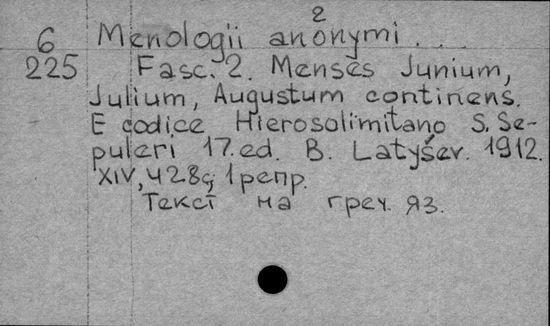 2
6 Menologii anonymi . . .
225 Fasc. 2. Menses Junium,
Julium, Augustum continens.
E codice Hierosolimitano S. Se-
pulcri 17. ed. B. Latyšev. 1912.
XIV, 428 с, 1 репр.
Текст на греч. яз.